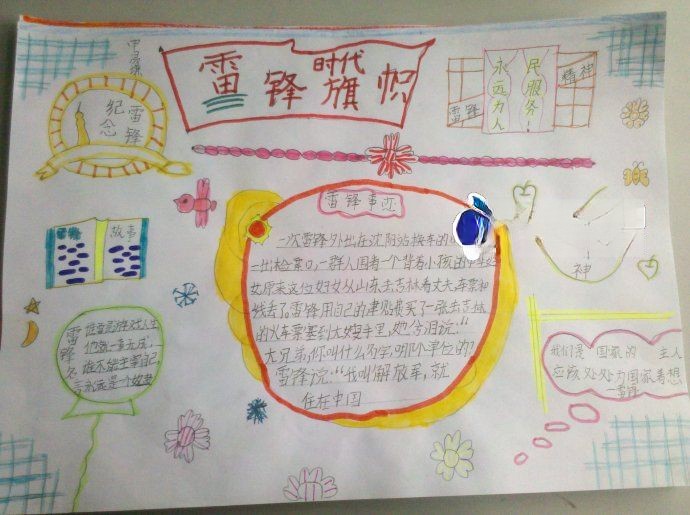 雷锋时代旗帜
纪念
雷锋
雷锋
永远为人
民服务!
精神
故事
雷锋事迹
一次雷锋外出在沈阳站换车的
一出检票口,一群人围着一个背着小孩的中年妇
女原来这位妇女从山东去吉林看丈夫车票和
钱丢了。雷锋用自己的津贴费买了一张去吉林
的火车票塞到大嫂手里,她含泪说:“
大兄弟,你叫什么名字,哪个单位的?
雷锋说:“我叫解放军,就
住在中国
雷锋名言
谁要是游戏人生
他就一事无成,
谁不能主宰自己,
永远是一个奴隶
神
我们是国家的主人
应该处处为国家着想
—雷锋